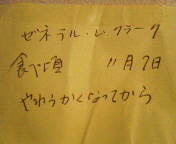 ゼネラル・レクラーク
食べ頃 11月7日
やわらかくなってから